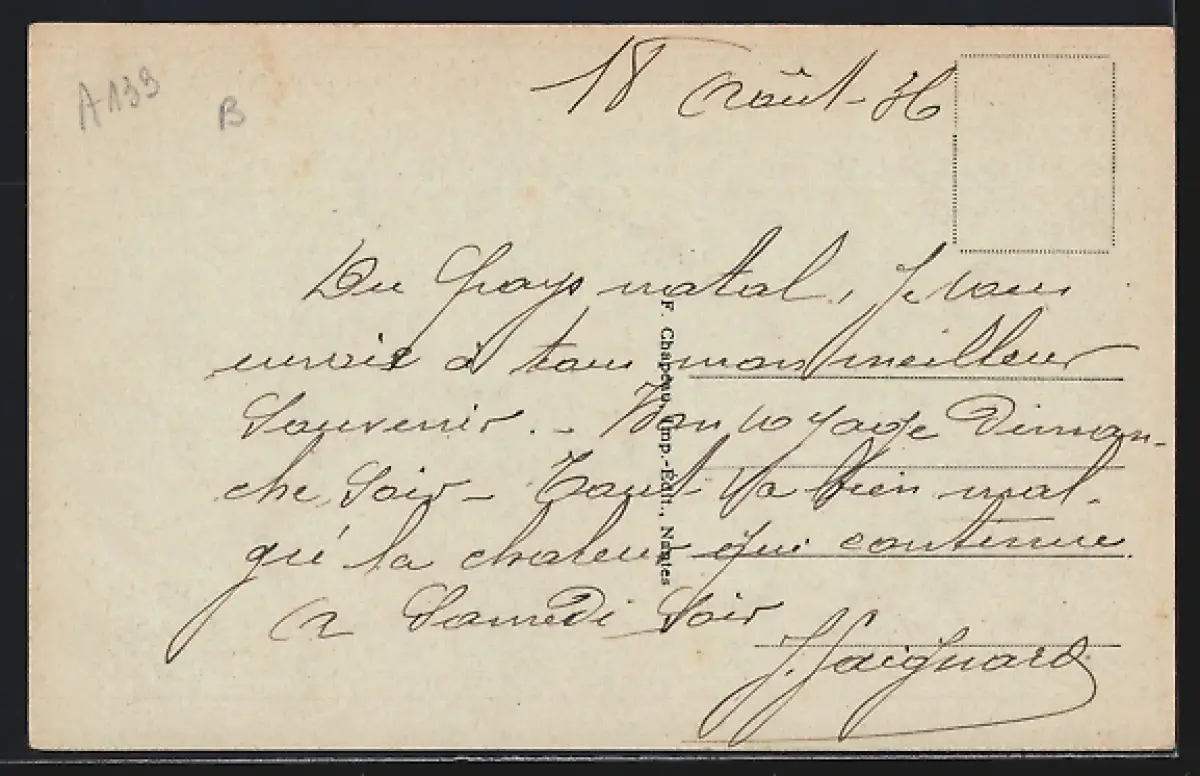 A139
B
18 Août - 36
Du Pays natal, Je vous
envoie à tous mon meilleur
Souvenir. - Bon voyage Diman-
che Soir - Tout va bien mal-
gré la chaleur qui continue.
A Samedi Soir
F. Chapeau, Imp.-Édit., Nantes